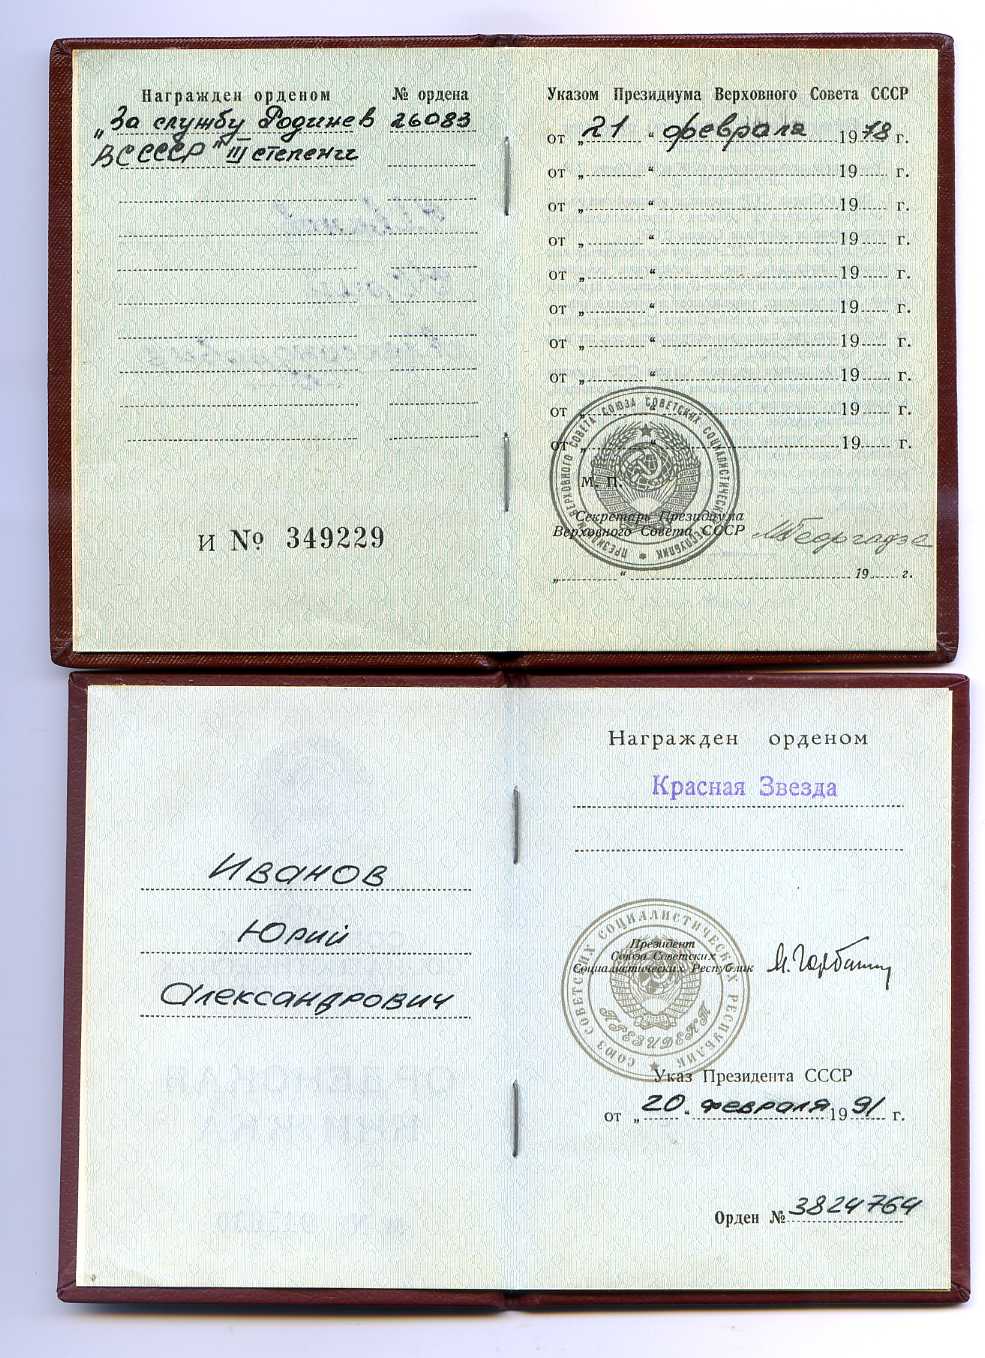 Награжден орденом № ордена
„За службу Родине в 26083
ВС СССР" III степени
И № 349229
Указом Президиума Верховного Совета СССР
от „ 21 “ февраля 1978 г.
от „ “ 19 г.
от „ “ 19 г.
от „ “ 19 г.
от „ “ 19 г.
от „ “ 19 г.
от „ “ 19 г.
от „ “ 19 г.
от „ “ 19 г.
от „ “ 19 г.
ПРЕЗИДИУМ ВЕРХОВНОГО СОВЕТА СОЮЗА СОВЕТСКИХ СОЦИАЛИСТИЧЕСКИХ РЕСПУБЛИК
М. П.
Секретарь Президиума
Верховного Совета СССР МГеоргадзе
„ “ 19 г.
Иванов
Юрий
Александрович
Награжден орденом
Красная Звезда
СОЮЗ СОВЕТСКИХ СОЦИАЛИСТИЧЕСКИХ РЕСПУБЛИК
Президент
Союза Советских
Социалистических Республик
ПРЕЗИДЕНТ
Указ Президента СССР
от „ 20 “ февраля 1991 г.
Орден № 3824764